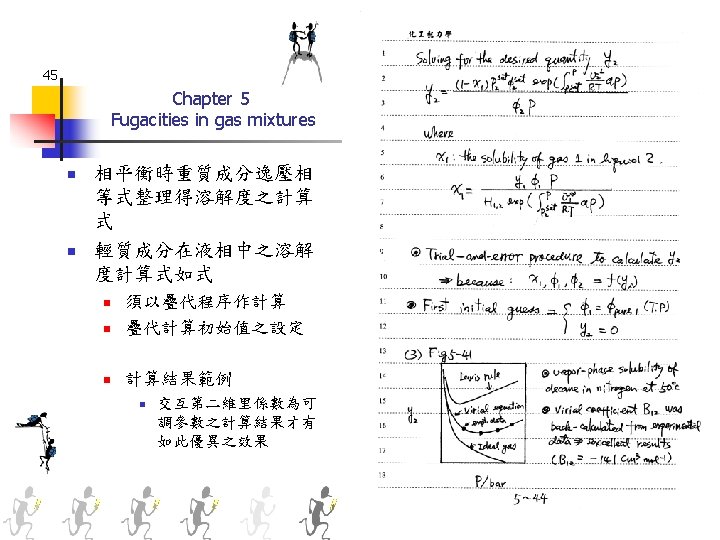 45
Chapter 5
Fugacities in gas mixtures
相平衡時重質成分逸壓相
等式整理得溶解度之計算
式
輕質成分在液相中之溶解
度計算式如式
須以疊代程序作計算
疊代計算初始值之設定
計算結果範例
交互第二維里係數為可
調參數之計算結果才有
如此優異之效果
化工熱力學
1 Solving for the desired quantity y₂
2
3 y₂ = (1-x₁) P₂sat φ₂sat exp(∫ P₂sat P v₂L/RT dP) / φ₂ P
4 where
5 x₁: the solubility of gas 1 in liquid 2.
6 x₁ = y₁ φ₁ P / H₁,₂ exp(∫ P₂sat P v̄₁∞/RT dP)
7
8
9 ⊙ Trial-and-error procedure to calculate y₂
10 ⇒ because: x₁, φ₁, φ₂ = f(y₂)
11 ⊙ First initial guess = { φ₁ = φpure 1 (T.P)
12 y₂ = 0
13 (3) Fig 5-41
14 Lewis rule
⊙ vapor-phase solubility of
decane in nitrogen at 50°C
15 y₂
virial equation
exptl data
⊙ virial coefficient B₁₂ was
16 back-calculated from experimental
17 Ideal gas
data ⇒ excellent results
(B₁₂ = -141 cm³ mol⁻¹)
18 P/bar
5-44